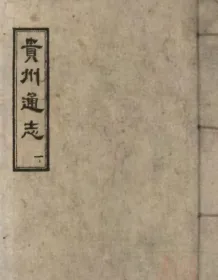 貴州通志
一